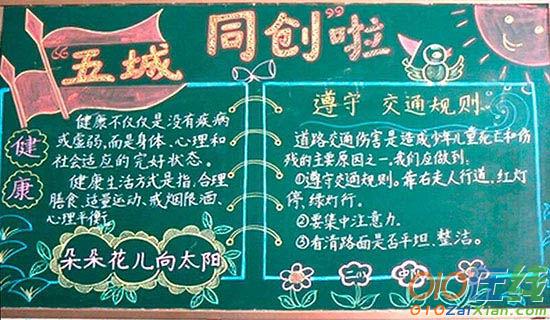 "五城 同创"啦
健康
健康不仅仅是没有疾病
或虚弱,而是身体、心理和
社会适应的完好状态。
健康生活方式是指:合理
膳食、适量运动、戒烟限酒、
心理平衡。
朵朵花儿向太阳
遵守 交通规则。
道路交通伤害是造成少年儿童死亡和伤
残的主要原因之一,我们应做到:
①遵守交通规则。靠右走人行道,红灯
停,绿灯行。
②要集中注意力。
③看清路面是否平坦、整洁。
010在线
010zaixian.com